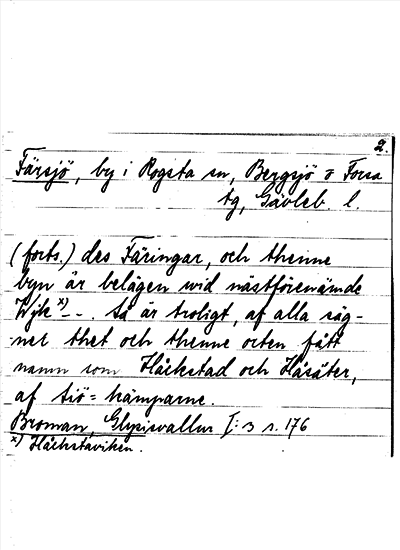 2.
Färsjö, by i Rogsta sn, Bergsjö o Forsa
tg, Gävleb. l.
(forts.) des Färingar, och thenne
byn är belägen wid nästförenämde
Wijk x) - . . Så är troligt, af alla säg-
ner thet och thenne orten fått
namn som Håckstad och Håsäter,
af siö-kämparne.
Broman, Glysisvallur I: 3 s. 176
x) Håckstaviken.